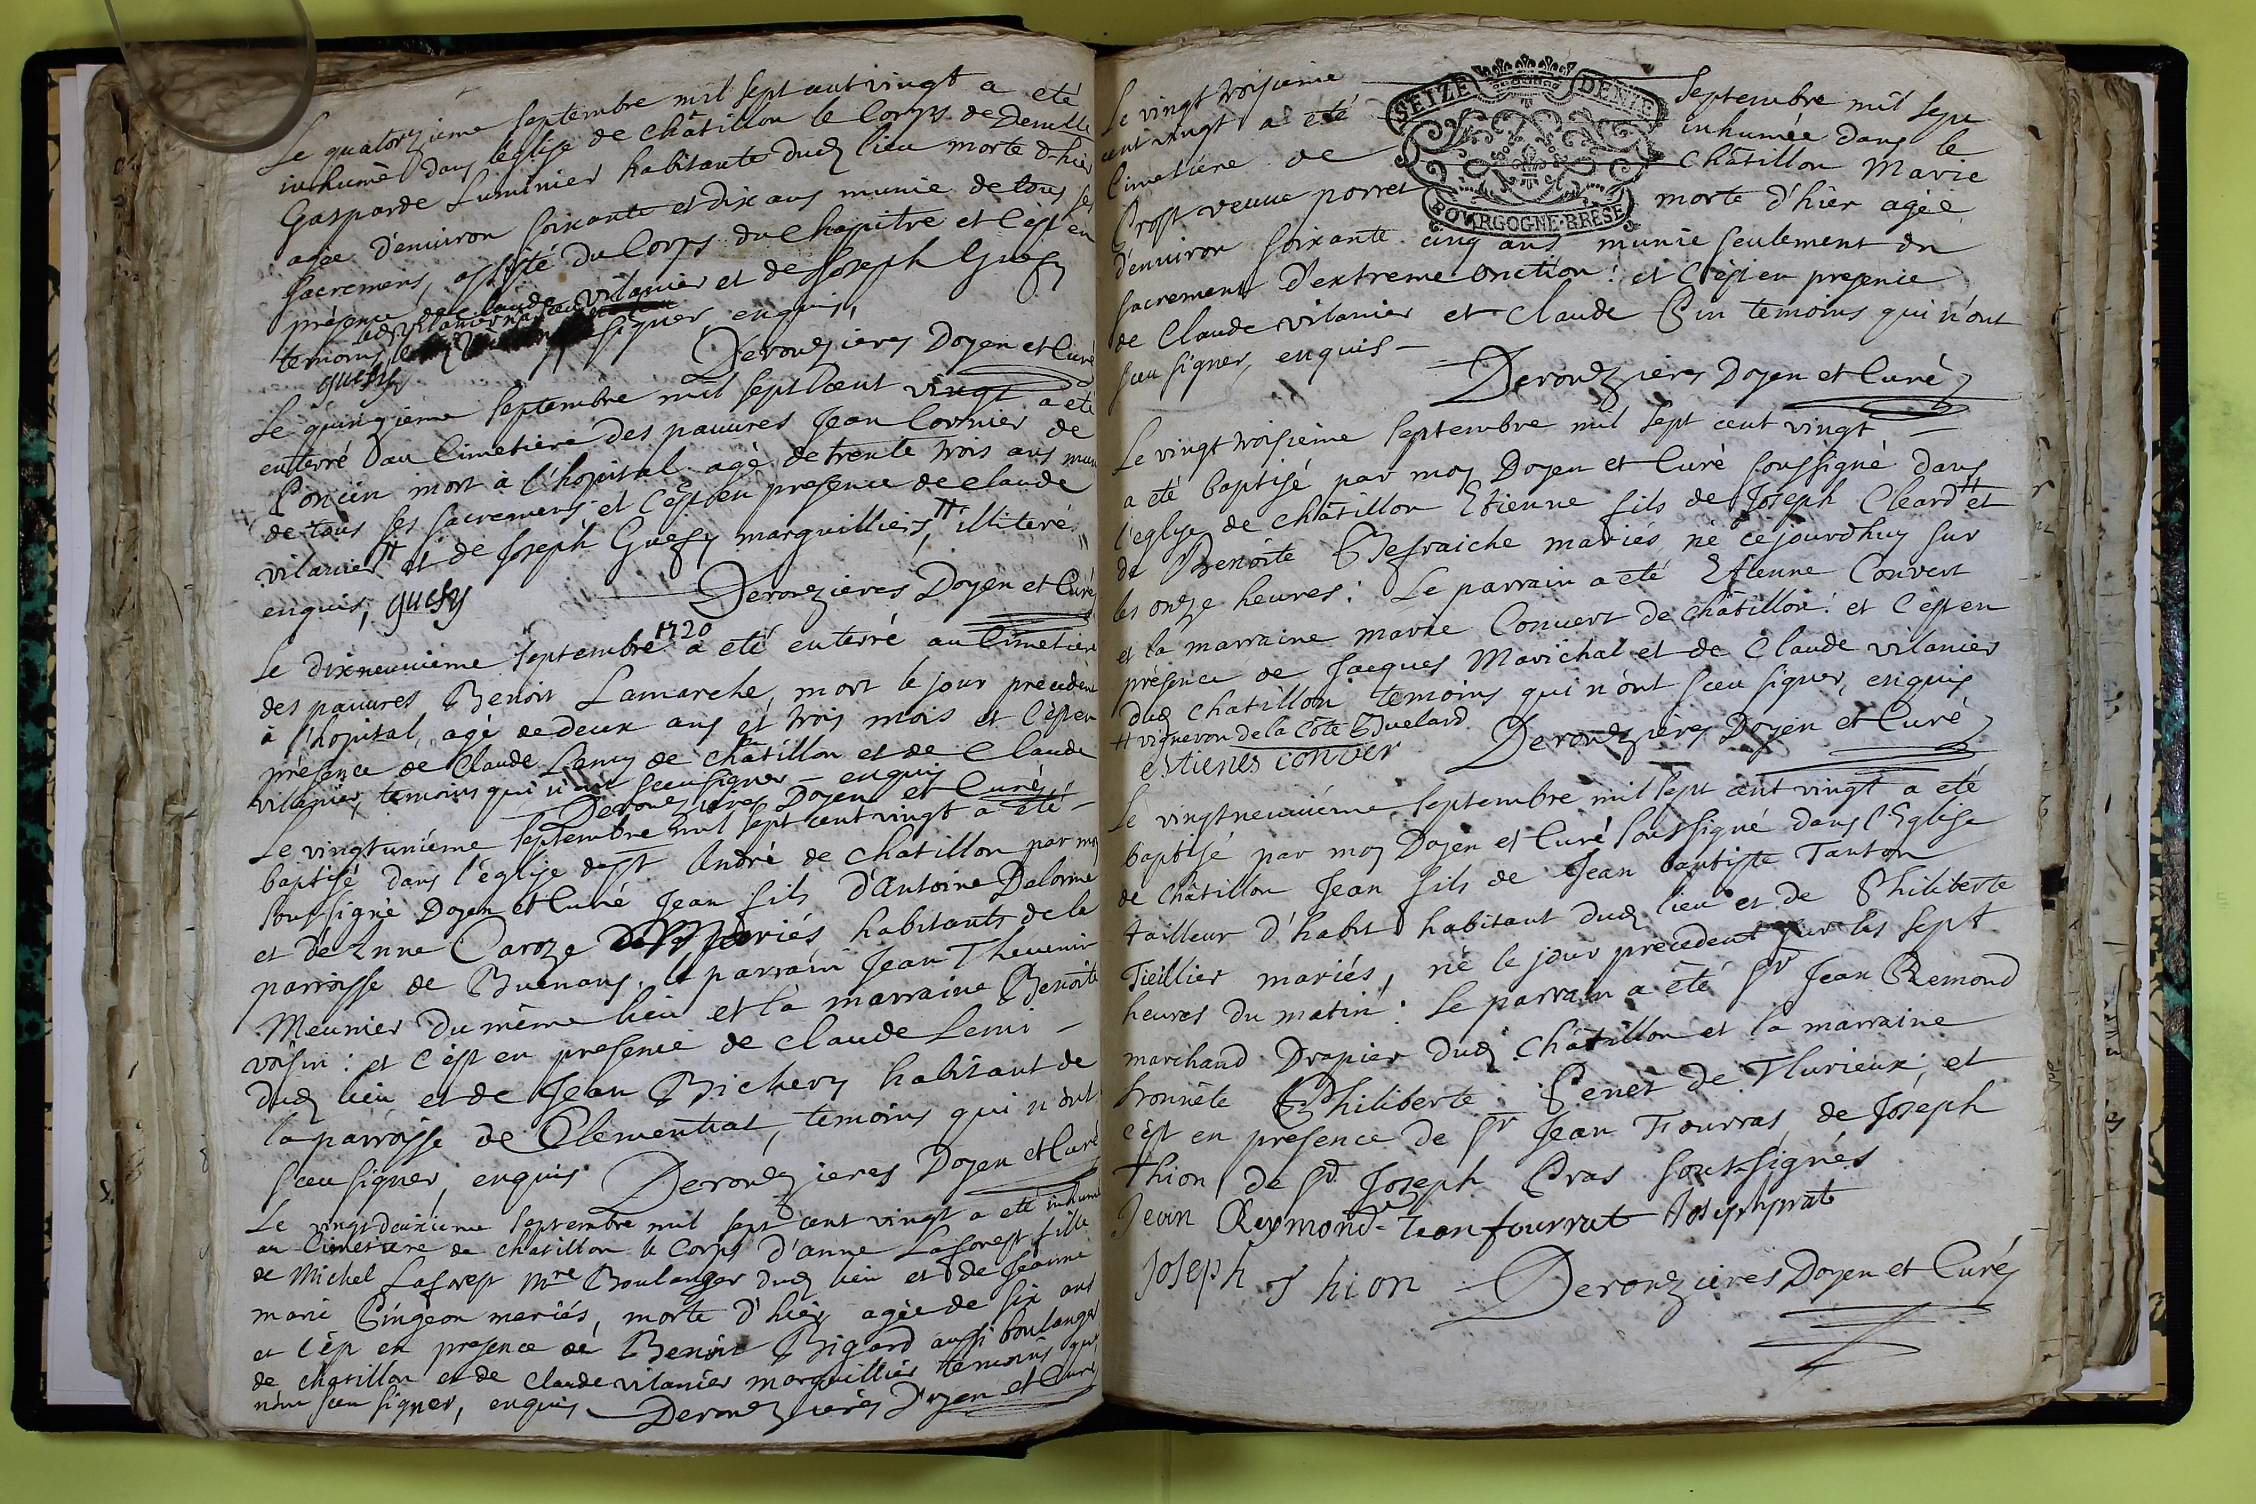 Le quatorzieme septembre mil sept cent vingt a eté
inhumé dans l'eglise de châtillon le corps de
Gasparde Luminier habitante dud lieu morte d'hier
agée d'environ soixante et dix ans munie de tous ses
sacremens, assisté du Corps du Chapitre et c'est en
présence de claude vilanier et de Joseph Guefy
temoins, signer enquis,
guefy Derouzieres Doyen et Curé
Le quinzieme septembre mil sept cent vingt a eté
enterré au Cimetiere des pauures Jean Cormier de
Concin mort à l'hopital agé de trente trois ans muni
de tous ses sacremens et c'est en presence de claude
vilanier # et de Joseph Guefy marguilliers, # illiteré
enquis, guefy Derouzieres Doyen et Curé
Le dixneuuieme septembre 1720 a eté enterré au Cimetiere
des pauures Benoit Lamarche, mort le jour precedent
à l'hopital, agé de deux ans et trois mois et c'est en
présence de Claude Lemy de châtillon et de Claude
vilanier, temoins qui n'ont sceu signer – enquis
Derouzieres Doyen et Curé
Le vingtunième septembre mil sept cent vingt a eté –
baptisé dans l'église de St André de chatillon par moy
soussigné Doyen et Curé Jean fils d'Antoine Delorme
et de Anne Caroze mariés habitants de la
parroisse de Buenans, le parrain Jean Theuenin
Meunier du même lieu et la marraine Benoîte
voisin: et c'est en presence de claude Lemi –
dud lieu et de Jean Bichery habitant de
la parroisse de Clementiat, temoins qui n'ont
sceu signer, enquis Derouzieres Doyen et Curé
Le vingtdeuxieme septembre mil sept cent vingt a eté inhumé
au Cimetiere de chatillon le Corps d'anne Laforest fille
de Michel Laforest Mre Boulanger dud lieu et de Jeanne
marie Gingeon mariés, morte d'hier agée de six ans
et c'est en presence de Benoit Bigard aussi boulanger
de chatillon et de claude vilanier marguillier temoins qui
n'ont sceu signer, enquis Derouzieres Doyen et Curé
Le vingt troisieme SEIZE DENIE septembre mil sept
cent vingt a eté inhumée dans le
Cimetiere de châtillon Marie
Prost veuue porret BOVRGOGNE·BRESE morte d'hier agée
d'enuiron soixante cinq ans munie seulement du
sacrement d'extreme onction: et c'est en presence
de Claude vilanier et Claude Pin temoins qui n'ont
sceu signer, enquis –
Derouzieres Doyen et Curé
Le vingt troisieme septembre mil sept cent vingt –
a eté baptisé par moy Doyen et Curé soussigné dans
l'eglise de châtillon Etienne fils de Joseph Cleard # et
de Benoîte Befraiche mariés né cejourdhuy sur
les onze heures: Le parrain a eté Etienne Convert
et la marraine marie Convert de châtillon: et c'est en
présence de Jacques Marichal et de Claude vilanier
dud chatillon temoins qui n'ont sceu signer, enquis
# vigneron de la Côte Buelard
estienes conver Derouzieres Doyen et Curé
Le vingtneuuiéme septembre mil sept cent vingt a eté
baptisé par moy Doyen et Curé soussigné dans l'Eglise
de châtillon Jean fils de Jean baptiste Tanton
tailleur d'habit habitant dud lieu et de Philiberte
Tieillier mariés, né le jour precedent sur les sept
heures du matin: Le parrain a été Sr Jean Remond
marchand Drapier dud châtillon et la marraine
honnête Philiberte Penet de Thurieux, et
c'est en presence de Sr Jean Fourras, de Joseph
thion, de Sr Joseph Pras soussignés
Jean Reymond – Jean fourrat Joseph prat
Joseph thion Derouzieres Doyen et Curé